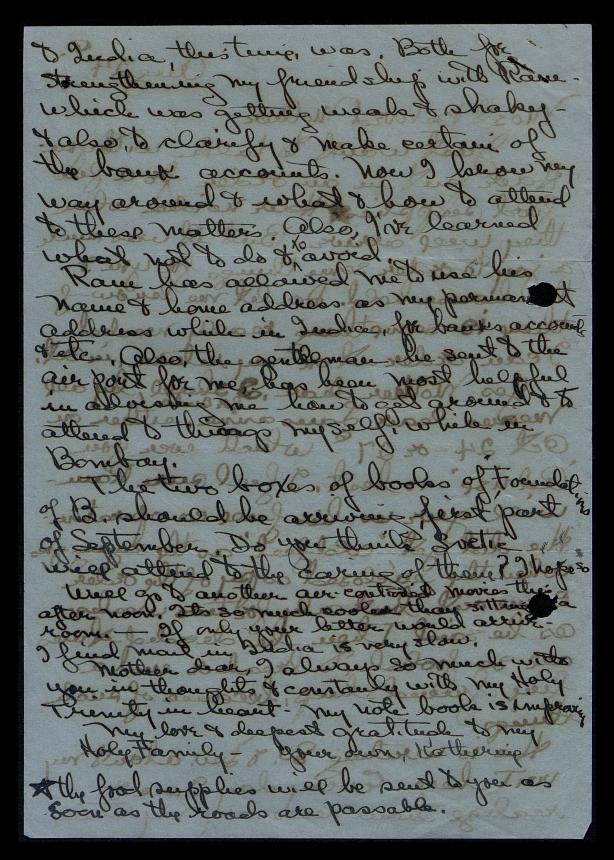 to India, this time, was. Both for
strengthening my friendship with Ram -
which was getting weak & shakey -
& also, to clarify & make certain of
the bank accounts. Now I know my
way around & what & how to attend
to these matters. Also, I've learned
what not to do & to avoid.
Ram has allowed me to use his
name & home address as my permanent
address while in India, for banks accounts
& etc. Also, the gentleman he sent to the
air port for me, has been most helpful
in advising me how to get around & to
attend to things myself, while in
Bombay.
The two boxes of books of Foundat-
ions
of B. should be arriving first part
of September. Do you think
will attend to the caring of them? I hope so
Will go to another air-conditioned movies this
after noon. Its so much cooler than sitting in a
room. - If only your letter would arrive -
I find mail in India is very slow.
Mother dear, I always so much with
you in thoughts & constantly with my Holy
Trinity in heart - My note book is improving
My love & deepest gratitude to my
Holy Family - Your own, Katherine
☆ the food supplies will be sent to you as
soon as the roads are passable.